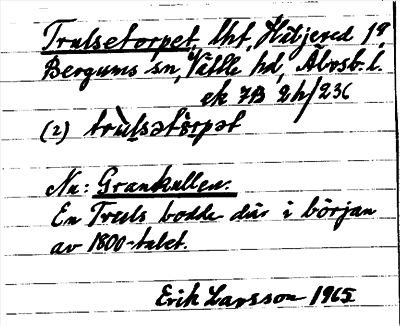 Trulsetorpet, lht, Hultjered 1⁹
Bergums sn, Vättle hd, Älvsb. l.
ek 7B 2h/236
(2) trùlsətårpət
Nu: Grankullen.
En Truls bodde där i början
av 1800-talet.
Erik Larsson 1965